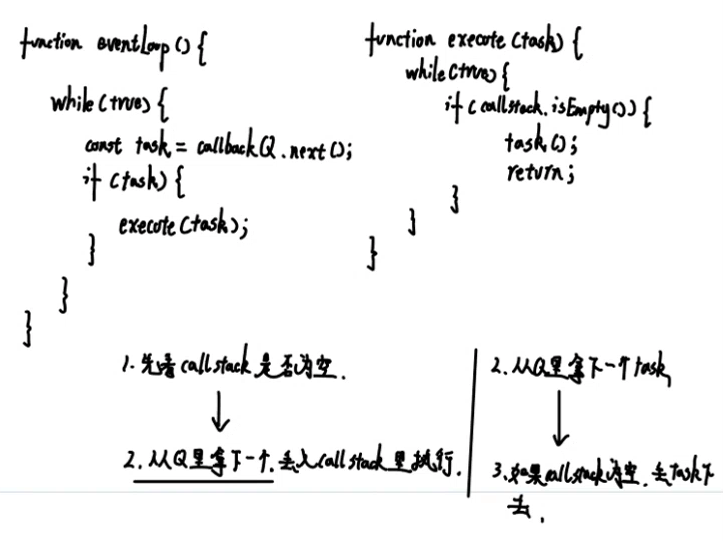 function eventLoop () {
while (true) {
const task = callbackQ.next();
if (task) {
execute (task);
}
}
}
function execute (task) {
while (true) {
if (callstack.isEmpty()) {
task ();
return;
}
}
}
1. 先看 callstack 是否为空.
2. 从Q里拿下一个. 丢入 callstack 里执行.
2. 从Q里拿下一个 task,
3. 如果callstack为空. 丢 task 下
去.